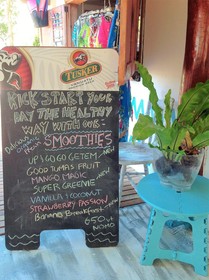 TUSKER
KICK START YOUR
DAY THE HEALTHY
WAY WITH OUR:
Delicious
SMOOTHIES
UP & GO GO GETEM NEW
GOOD TUMBS FRUIT
MANGO MAGIC NEW
SUPER GREENIE
VANILLA & COCONUT
STRAWBERRY PASSION
Banana Breakfast NEW
650VT